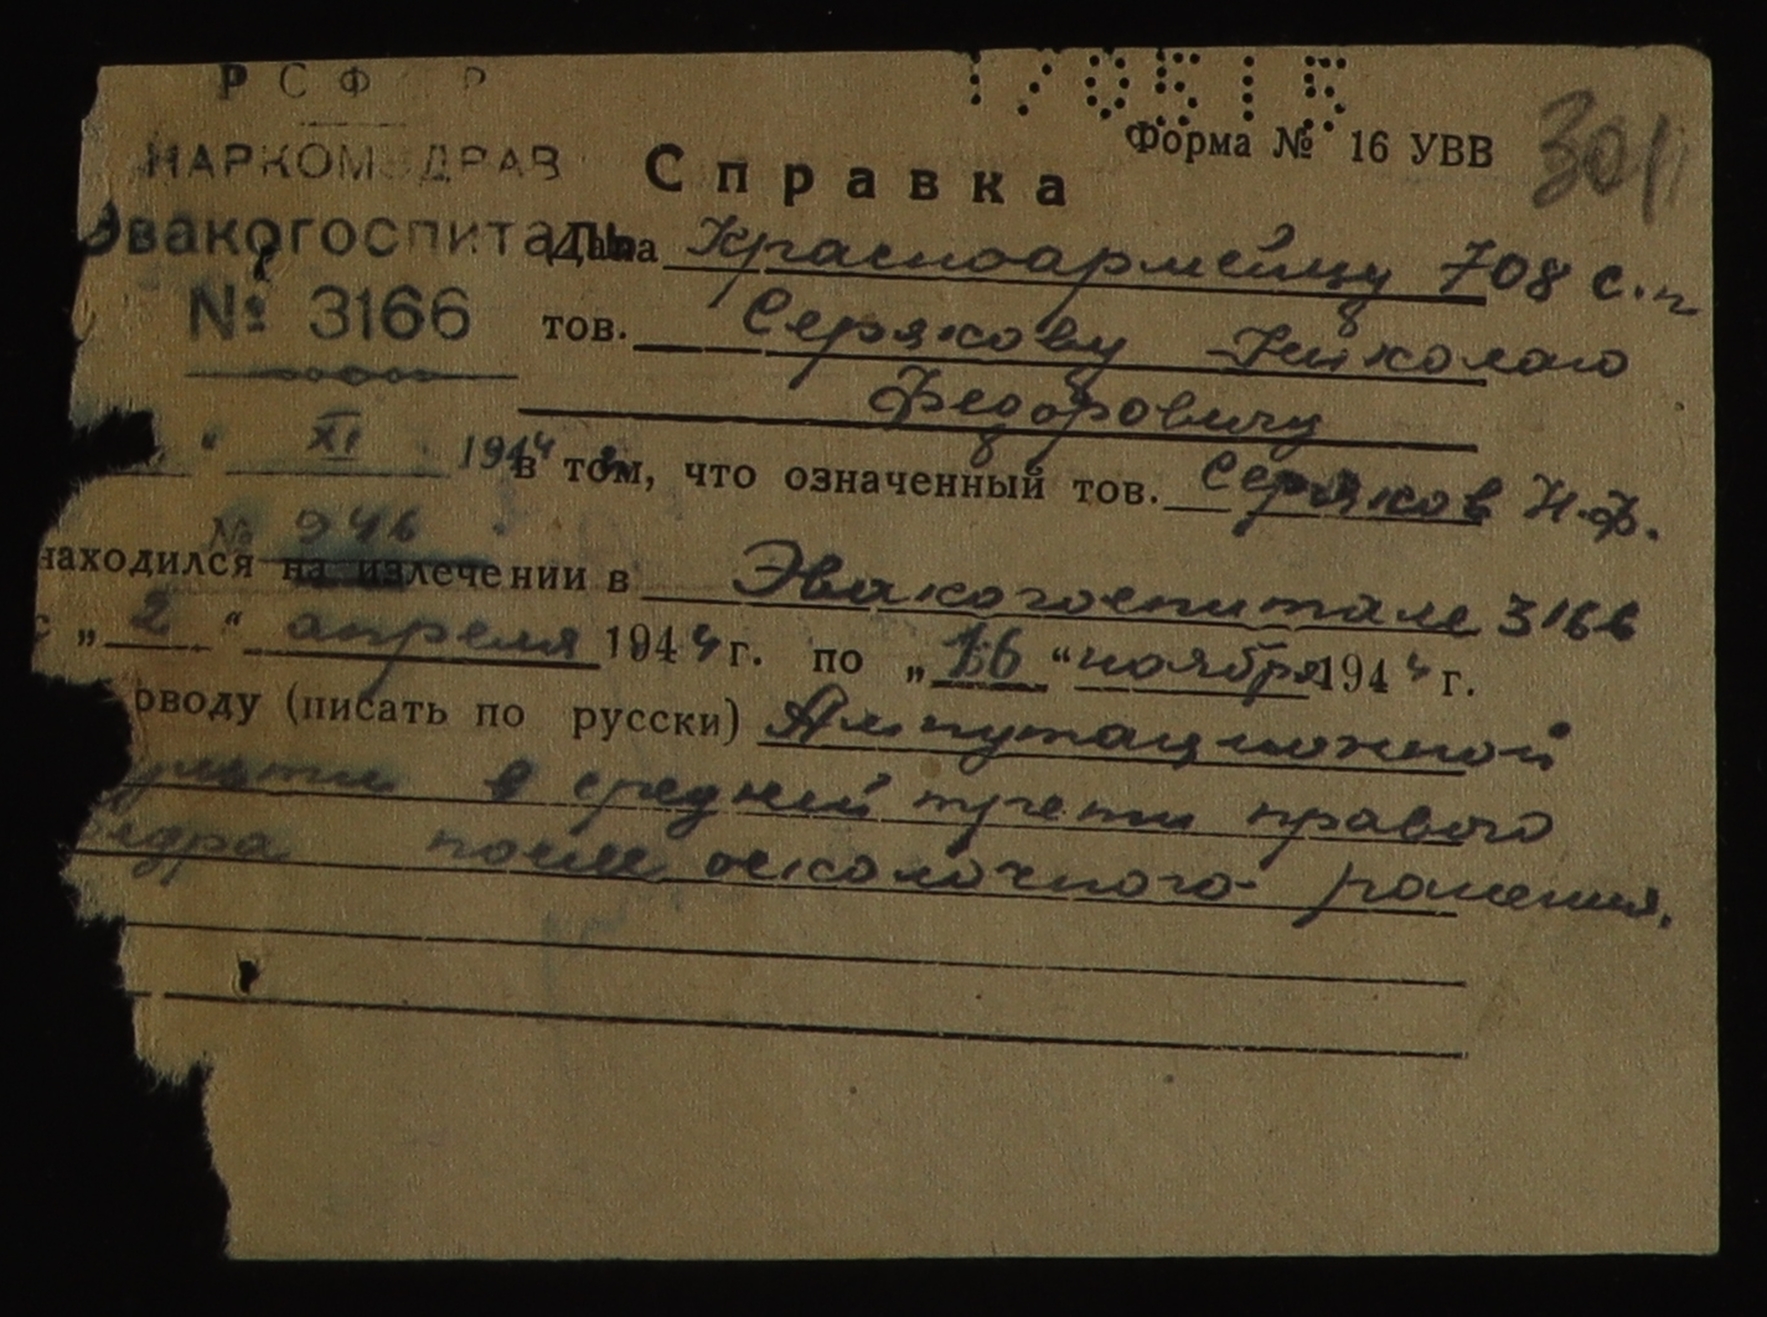 170515
Р С Ф Р
Форма № 16 УВВ
НАРКОМЗДРАВ
Справка
Эвакогоспиталь
Дана Красноармейцу 708 с.п
№ 3166
тов. Серякову Николаю
Федоровичу
" XI 1944
в том, что означенный тов. Серяков Н.Ф.
№ 946
находился на излечении в Эвакогоспитале 3166
с „2" апреля 1944 г. по „16" ноября 1944 г.
оводу (писать по русски) Ампутационной
культи в средней трети правого
бедра после осколочного ранения.